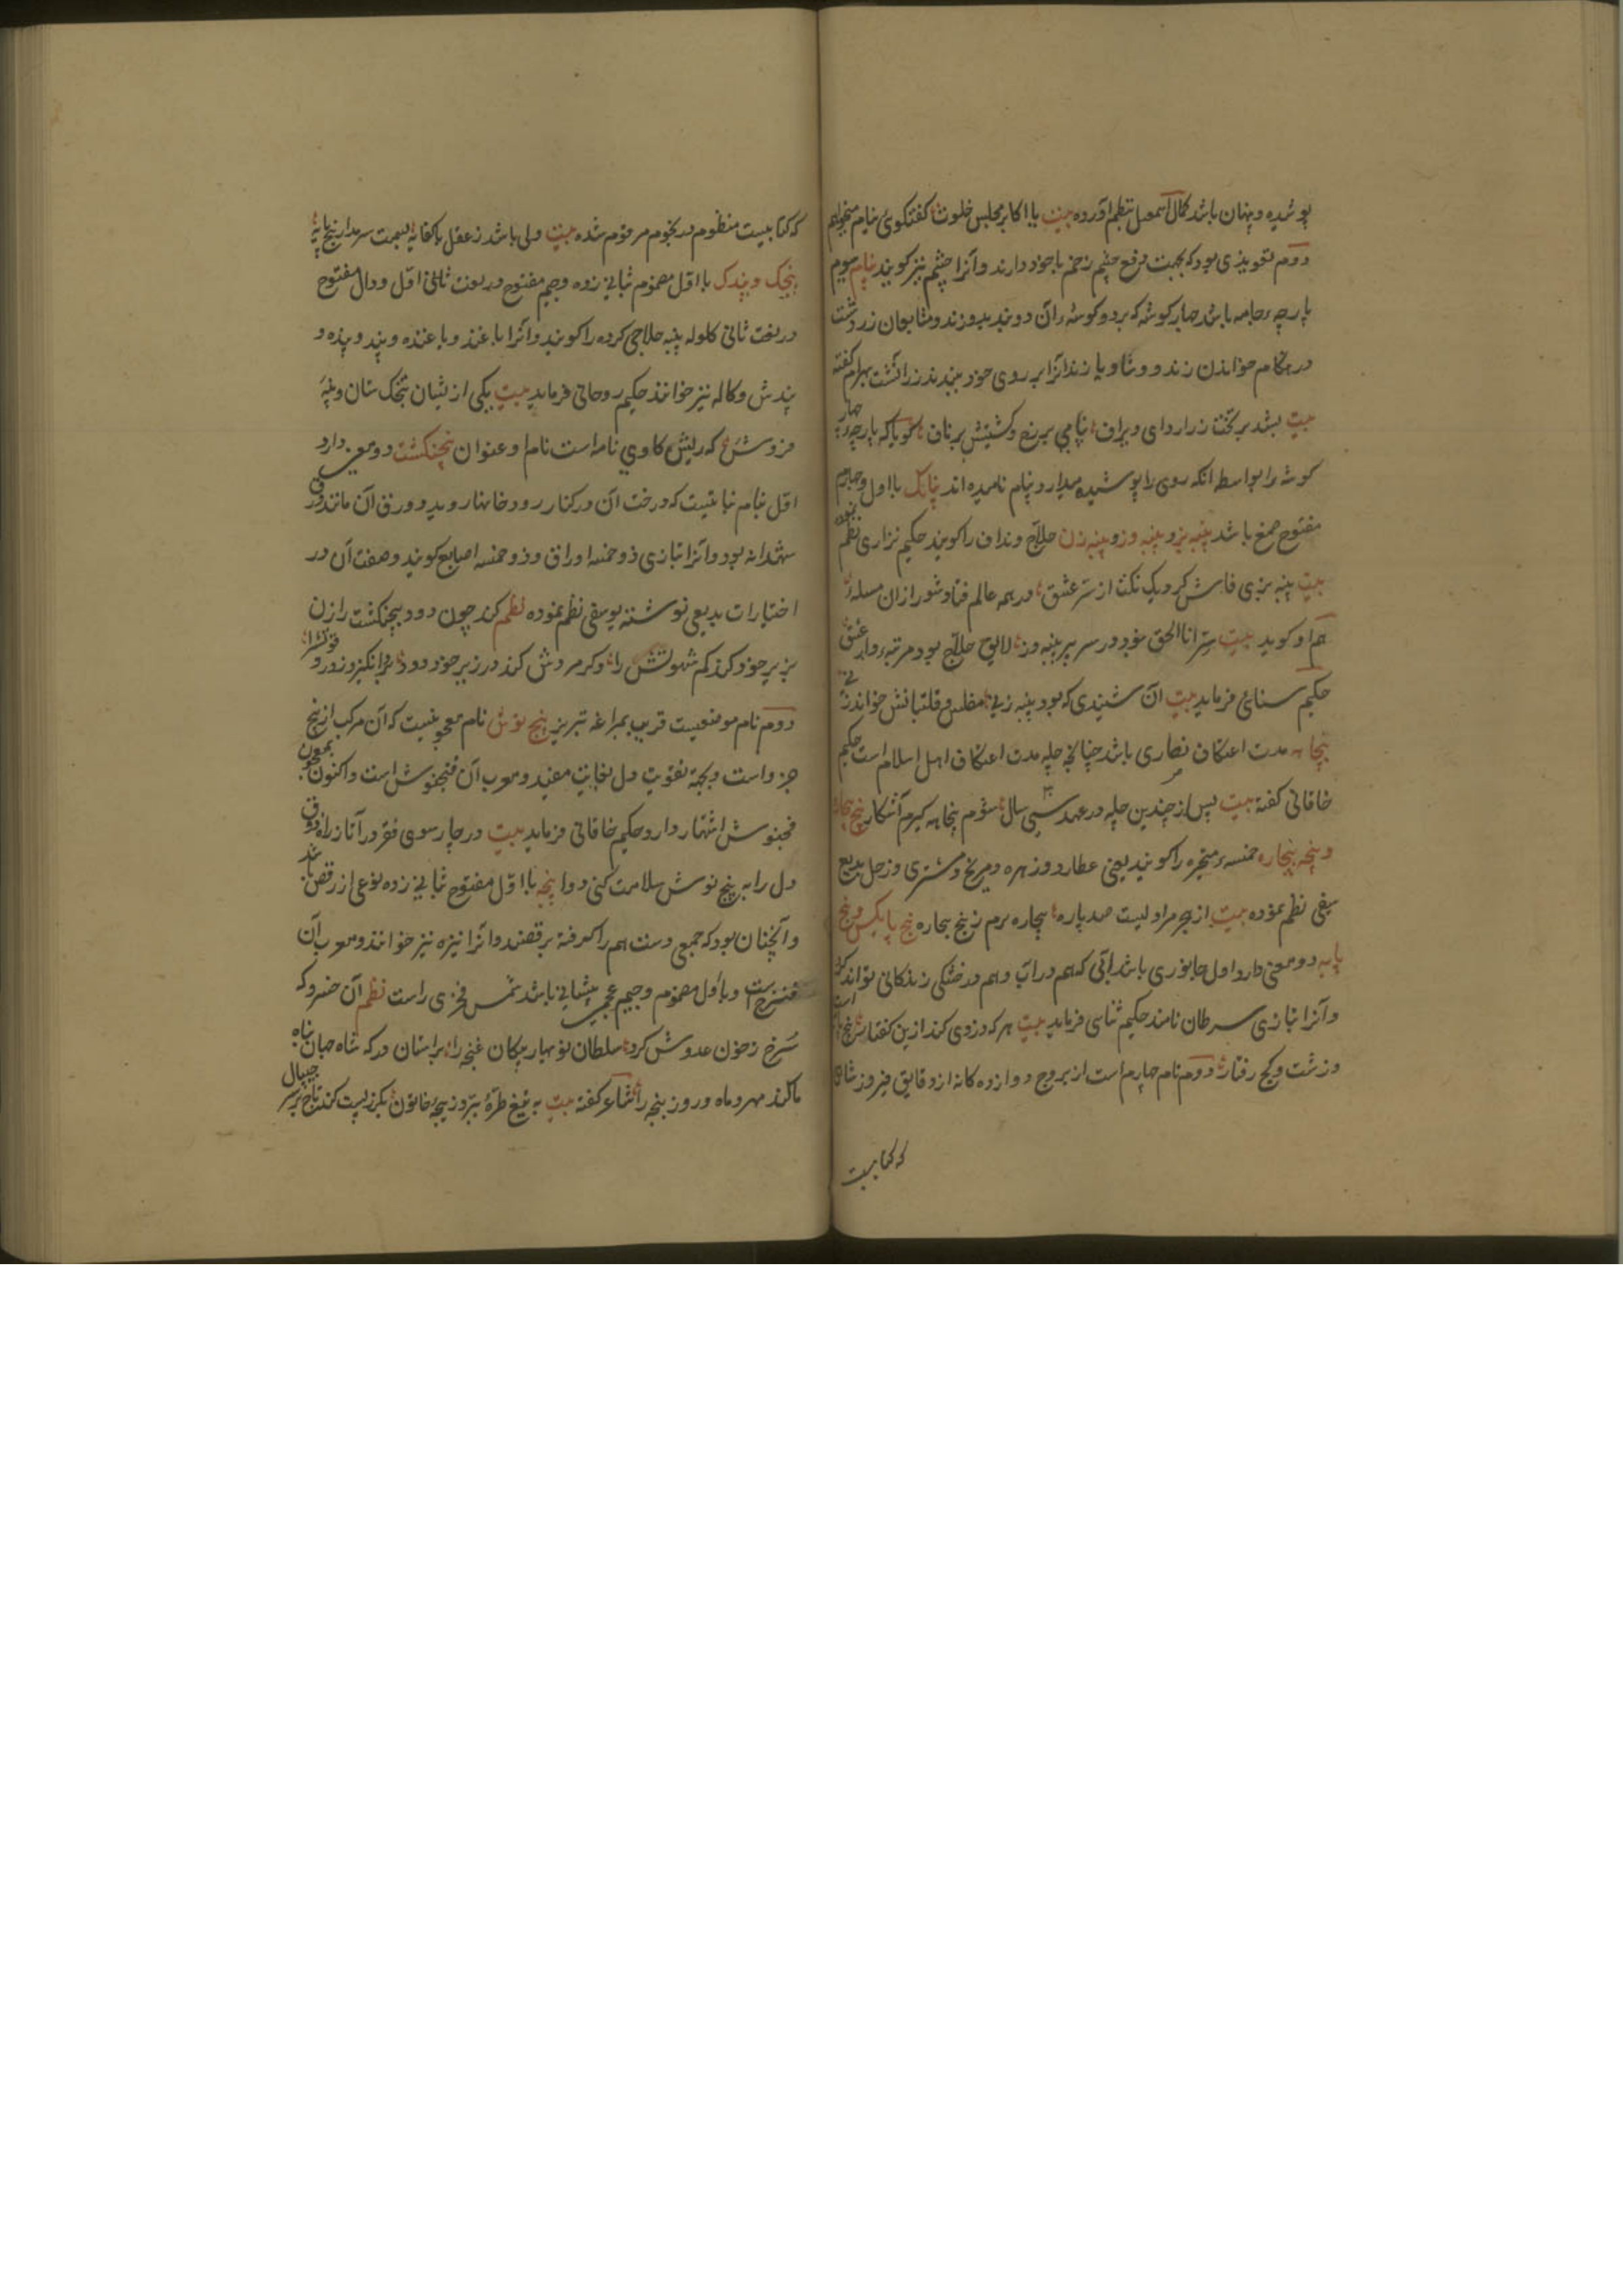 پوشیده و پنهان باشد کمال اسمعیل بنظم آورده بیت با اکابر مجلس خلوت گفتگوی پنام میخواهم
دوم تعویذی بود که بجهت دفع چشم زخم با خود دارند و آنرا چشم نیز گویند پنام سوم
پارچه جامه باشد چهار گوشه که بر دو گوشه آن دو بند بدوزند و متابعان زردشت
در هنگام خواندن زند و وستا و پازند آنرا بر روی خود ببندند زراتشت بهرام گفته
بیت بشد بر تخت زر اردای ویراف پنامی بر رخ و کشتیش بر ناف گویا که پارچه چهار
گوشه را بواسطه آنکه روی را پوشیده میدارد پنام نامیده اند پنانک با اول و چهارم
مفتوح صمغ باشد پنبه بز و پنبه وز و پنبه زن حلاج و نداف را گویند حکیم نزاری نظم نموده
بیت پنبه بزی فاش کرد یک نکت از سر عشق در همه عالم فتاد شور ازان مسئله
هم او گوید بیت سر انا الحق نبود در سر هر پنبه وز لایق حلاج بود مرتبه دار عشق
حکیم سنائی فرماید بیت آن شنیدی که بود پنبه زنی مفلس و قلتبانش خواند زنی
پنجاهه مدت اعتکاف نصاری باشد چنانچه چله مدت اعتکاف اهل اسلام است حکیم
خاقانی گفته بیت پس از چندین چله در عهد سی سال شوم پنجاهه گیرم آشکارا پنج بیچاره
و پنجه بیچاره خمسه متحیره را گویند یعنی عطارد و زهره و مریخ و مشتری و زحل بدیع
سیفی نظم نموده بیت از هجر مرا دلیست صد پاره بیچاره ترم ز پنج بیچاره پنج پایک و پنج
پایه دو معنی دارد اول جانوری باشد آبی که هم در آب و هم در خشکی زندگانی تواند کرد
و آنرا بتازی سرطان نامند حکیم ثنائی فرماید بیت هر که دزدی کند ازین گفتار پنج است
و زشت و کج رفتار دوم نام چهارم است از بروج دوازده گانه از دقایق فیروز شاهی
که کتابیست
که کتابیست منظوم در نجوم مرقوم شده بیت ولی باشد ز عقل با کفایه سر مدار پنج پایه
پنجک و پندک با اول مضموم بثانی زده و جیم مفتوح در لغت اول و دال مفتوح
در لغت ثانی گلوله پنبه حلاجی کرده را گویند و آنرا باغند و باغنده و پند و پنده و
پندش و کاله نیز خوانند حکیم روحانی فرماید بیت یکی از ایشان پنجک ستان و پنبه
فروش که ریش گاوی نامه است نام او عنوان پنجنکشت دو معنی دارد
اول نام نباتیست که درخت آن در کنار رودخانها روید و ورق آن مانند ورق
شهدانه بود و آنرا بتازی ذو خمسه اوراق و ذو خمسه اصابع گویند و صفت آن در
اختیارات بدیعی نوشته یوسفی نظم نموده نظم کند چون دود پنجنکشت را زن
بزیر خود کند کم شهوتش را وگر مردش کند در زیر خود دود برانگیزد درو قوتش را
دوم نام موضعیست قریب بمراغه تبریز پنج نوش نام معجونیست که آن مرکب از پنج
جزو است و بجهة تقویت دل بغایت مفید و معرب آن فنجنوش است و اکنون بمعجون
فنجنوش اشتهار دارد حکیم خاقانی فرماید بیت در چار سوی فقر درآ تا ز راه ذوق
دل را به پنج نوش سلامت کنی دوا پنجه با اول مفتوح بثانی زده نوعی از رقص باشد
و آنچنان بود که جمعی دست هم را گرفته برقصند و آنرا نیزه نیز خوانند و معرب آن
فنزج است و با اول مضموم و جیم عجمی پیشانی باشد شمس فخری راست نظم آن خسرو که
سرخ ز خون عدوش کرد سلطان نوبهار پیکان غنچه را براستان درگه شاه جهان پناه
مالند مهر و ماه و روز پنجه را شاعر گفته بیت به تیغ طره ببرد ز پنجه خاتون بگرز پست کند تاج بر سر جیپال